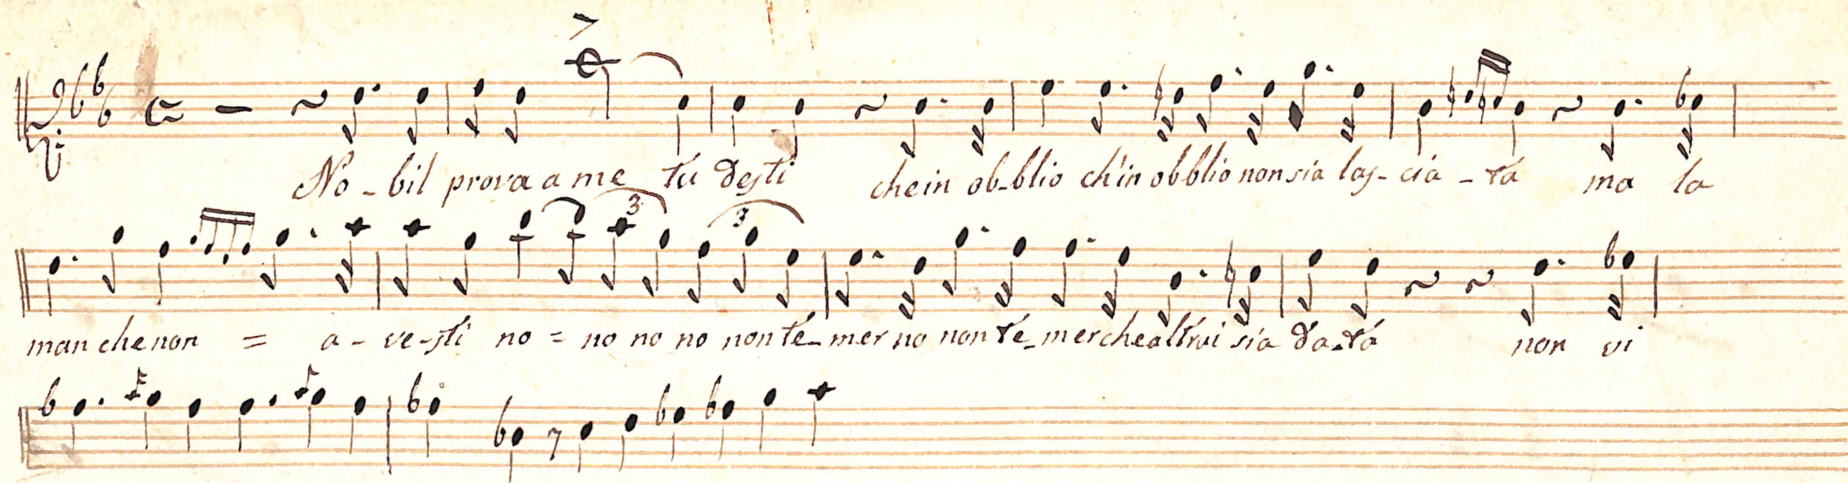 No - bil prova a me tu desti che in ob - blio ch'in obblio non sia las - cia - ta ma la
man che non = a - ve - sti no = no no no non te - mer no non te - mer che altrui sia da - ta non vi